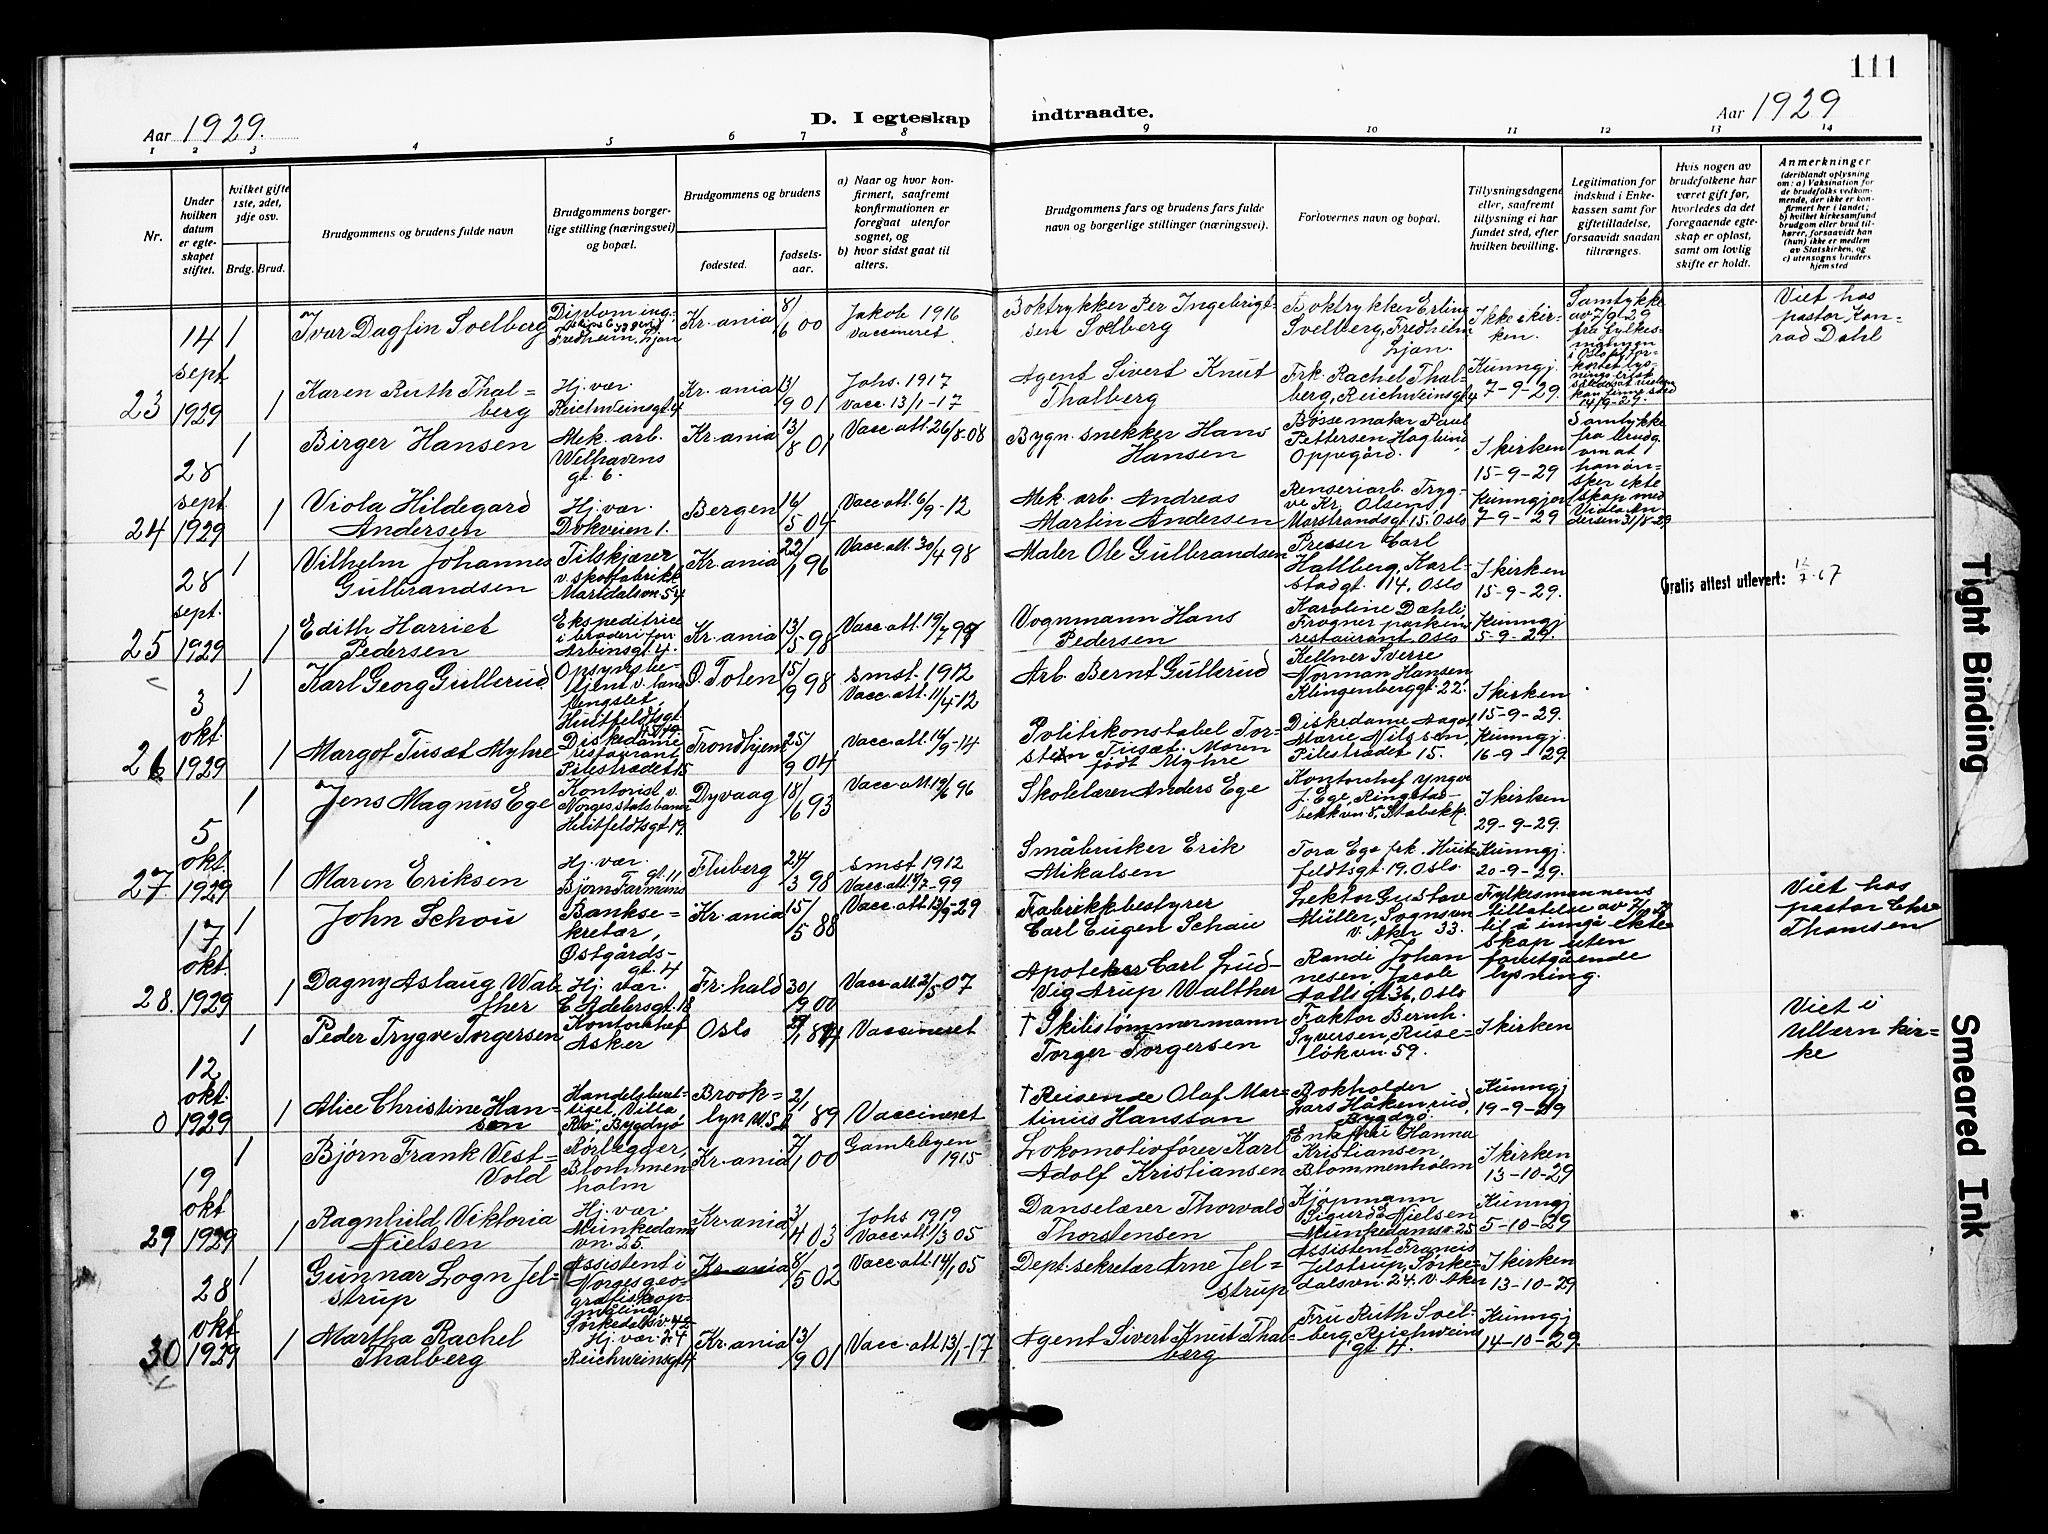 111
Aar 1929.
D. I egteskap
indtraadte.
Aar 1929
1 2 3 4 5 6 7 8 9 10 11 12 13 14
Nr.
Under
hvilken
datum
er egte-
skapet
stiftet.
hvilket gifte
1ste, 2det,
3dje osv.
Brdg. Brud.
Brudgommens og brudens fulde navn
Brudgommens borger-
lige stilling (næringsvei)
og bopæl.
Brudgommens og brudens
fødested.
fødsels-
aar.
a) Naar og hvor kon-
firmert, saafremt
konfirmationen er
foregaat utenfor
sognet, og
b) hvor sidst gaat til
alters.
Brudgommens fars og brudens fars fulde
navn og borgerlige stillinger (næringsvei).
Forlovernes navn og bopæl.
Tillysningsdagene
eller, saafremt
tillysning ei har
fundet sted, efter
hvilken bevilling.
Legitimation for
indskud i Enke-
kassen samt for
giftetilladelse,
forsaavidt saadan
tiltrænges.
Hvis nogen av
brudefolkene har
været gift før,
hvorledes da det
foregaaende egte-
skap er opløst,
samt om lovlig
skifte er holdt.
Anmerkninger
(deriblandt oplysning
om: a) Vaksination for
de brudefolks vedkom-
mende, der ikke er kon-
firmert her i landet;
b) hvilket kirkesamfund
brudgom eller brud til-
hører, forsaavidt han
(hun) ikke er medlem
av Statskirken, og
c) utensogns bruders
hjemsted
23
14
sept
1929
1
Ivar Dagfin Solberg
Diplom ing-
Fredheim, Ljan
Kr.ania
8/6 00
Jakob 1916
Vaccineret.
Boktrykker Per Ingebrigt-
sen Solberg
Boktrykker Erling
Solberg, Fredheim
Ljan.
Ikke i kir-
ken.
Samtykke
av 7/9 29
fra fylkes-
mannen
i Oslo
14/9-29.
Viet hos
pastor Kon-
rad Dahl
1
Karen Ruth Thal-
berg
Hj. vær.
Reichweinsgt. 4
Kr.ania
13/9 01
Johs. 1917
Vacc. 13/1-17
Agent Sivert Knut
Thalberg
Frk. Rachel Thal-
berg, Reichweinsgt 4
Kunngj.
7-9-29.
24
28
sept.
1929
1
Birger Hansen
Mek. arb.
Welhavens
gt. 6.
Kr.ania
13/8 01
Vacc. att. 26/8-08
Bygn. snekker Hans
Hansen
Bøssemaker Paul
Pettersen Haglund
Oppegård.
I kirken
15-9-29
Samtykke
fra brudg
om at
han øn-
sker ekte
skap med
Viola An
dersen 31/8-29
1
Viola Hildegard
Andersen
Hj. vær.
Dokveien 1.
Bergen
16/5 04
Vacc. att. 6/9-12
Mek. arb. Andreas
Martin Andersen
Renseriarb. Tryg-
ve Kr. Olsen,
Marstrandsgt. 15. Oslo
Kunngjor
7-9-29
25
28
sept.
1929
1
Vilhelm Johannes
Gulbrandsen
Tilskjærer
v. skofabrikk
Maridalsvn 54
Kr.ania
22/1 96
Vacc. att. 30/4 98
Maler Ole Gulbrandsen
Presser Carl
Hallberg, Karl-
stadgt. 14, Oslo
I kirken
15-9-29.
Gratis attest utlevert: 12/7-67
1
Edith Harriet
Pedersen
Ekspeditrice
i broderi forr
Arbinsgt. 4.
Kr.ania
13/5 98
Vacc. att. 19/7 99
Vognmann Hans
Pedersen
Karoline Dæhli
Frogner parken
restaurant Oslo
Kunngj
5-9-29.
26
3
okt.
1929
1
Karl Georg Gullerud
Opsynsbe-
tjent v. lans
fengslet,
Huitfeldtsgt.
Ø. Toten
15/9 98
smst. 1912
Vacc. att. 11/4-12
Arb. Bernt Gullerud
Kellner Sverre
Norman Hansen
Klingenberggt. 22.
I kirken
15-9-29.
1
Margot Tusæt Myhre
Diskedame
restaurant
Pilestrædet 15
Trondhjem
25/9 04
Vacc. att. 16/9-14
Politikonstabel Tor-
sten Tusæt. Moren
født Myhre
Diskedame Aagot
Marie Nilssen,
Pilestrædet 15.
Kunngj.
16-9-29.
27
5
okt
1929
1
Jens Magnus Ege
Kontorist v.
Norges statsbaner
Huitfeldtsgt. 19.
Dyvaag
18/6 93
Vacc. att. 19/6 96
Skolelærer Anders Ege
Kontorchef Yngve
J. Ege, Ringstad-
bekkvn 8, Stabekk.
I kirken
29-9-29.
1
Maren Eriksen
Hj. vær.
Bjørn Farmans gt. 11
Fluberg
24/3 98
smst. 1912
Småbruker Erik
Mikalsen
Tora Ege frk. Huit-
feldtsgt. 19. Oslo.
Kunngj.
20-9-29.
28.
17
okt.
1929
1
John Schou
Bankse-
kretær,
Østgårds-
gt. 4
Kr.ania
15/5 88
Vacc. att. 13/9-29
Fabrikkbestyrer
Carl Eugen Schou
Lektor Gustav
Müller, Sognsvn
v. Aker 33.
Fylkesmannens
tillatelse av 7/10 29
til å inngå ekte
skap uten
foregående
lysning.
Viet hos
pastor Chr
Thomsen
1
Dagny Aslaug Wal-
ther
Hj. vær.
C. Adelersgt. 18
Fr.hald
Vacc. att. 2/5-07
Apoteker Carl Lud-
vig Arup Walther
Randi Johan
nesen, Jacob
Aallsgt 36, Oslo
0
12
okt.
1929
1
Peder Trygve Torgersen
Kontorchef
Asker
Oslo
Vaccineret
† Skibstømmermann
Torger Torgersen
Faktor Bernh.
Syversen, Ruse-
løkvn. 59.
I kirken
Viet i
Ullern kir-
ke
1
Alice Christine Han-
sen
Handelsbest-
Villa,
Bygdø
Brook-
lyn
89
Vaccineret
† Reisende Olaf Mar-
tinius Hansson
Bokholder
Lars Håkenrud,
Bygdø.
Kunngj
19-9-29
29
19
okt
1929
1
Bjørn Frank Vest-
Vold
Rørlegger,
Blommen
holm
Kr.ania
7/1 00
Gamlebyen
1915
Lokomotivfører Karl
Adolf Kristiansen
Enkefru Hanna
Kristiansen,
Blommenholm
I kirken
13-10-29
1
Ragnhild Viktoria
Nielsen
Hj. vær
Munkedams
vn. 25.
Kr.ania
3/4 03
Johs 1919
Vacc. att. 1/3 05
Danselærer Thorvald
Thorstensen
Kjøpmann
Sigurd Nielsen
Munkedamsv. 25
Kunngj
5-10-29
30
28
okt
1929
1
Gunnar Logn Jel-
strup
Assistent i
Norges geo-
grafiske op-
måling,
Sørkedalsv. 24
Kr.ania
8/5 02
Vacc. att. 14/1 05
Dept. sekretær Arne Jel-
strup
Assistent Francis
Jelstrup, Sørke-
dalsvn. 24. v. Aker
I kirken
13-10-29
1
Martha Rachel
Thalberg
Hj. vær.
Reichweinsgt 4
Kr.ania
13/9 01
Vacc. att 13/1-17
Agent Sivert Knut Thal-
berg
Fru Ruth Sol-
berg, Reichweins
gt. 4.
Kunngj
14-10-29.
Tight Binding
Smeared Ink